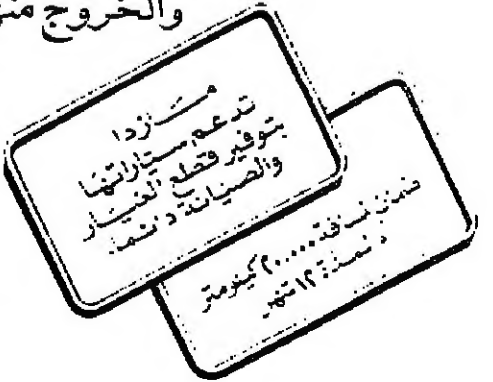 والخروج منه
مازدا
تدعم سياراتها
بتوفير قطع الغيار
والصيانة دائما.
ضمان لمسافة ٢٠,٠٠٠ كيلومتر
أو لمدة ١٢ شهر